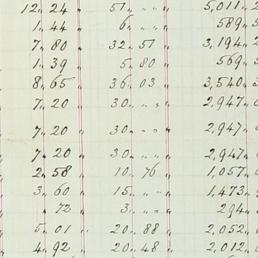 12 " 24 " 51 " " " 5,011 " 2
1 " 44 " 6 " " " 589 "
7 " 80 " 32 " 51 " 3,194 "
1 " 39 " 5 " 80 " 569 "
8 " 65 " 36 " 03 " 3,540 "
7 " 20 " 30 " " " 2,947 "
7 " 20 " 30 " " " 2,947 "
7 " 20 " 30 " " " 2,947 "
2 " 58 " 10 " 76 " 1,057 "
3 " 60 " 15 " " " 1,473 "
" 72 " 3 " " " 294 "
5 " 01 " 20 " 88 " 2,052 "
4 " 92 " 20 " 48 " 2,012 "